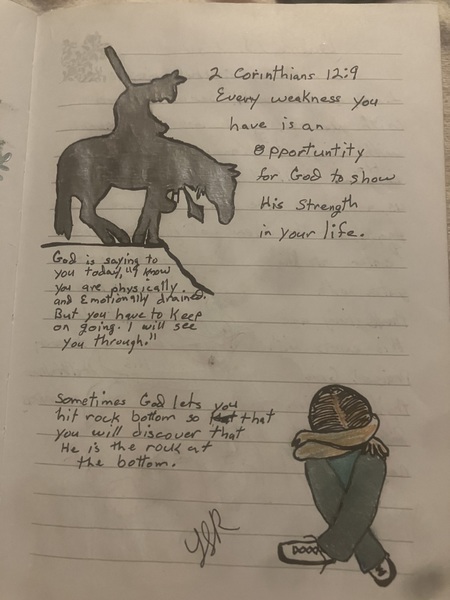 2 Corinthians 12:9
Every weakness you
have is an
opportuntity
for God to show
His Strength
in your life.
God is saying to
you today, "I know
you are physically.
and Emotionally drained.
But you have to keep
on going. I will see
you through."
Sometimes God lets you
hit rock bottom so that
you will discover that
He is the rock at
the bottom.